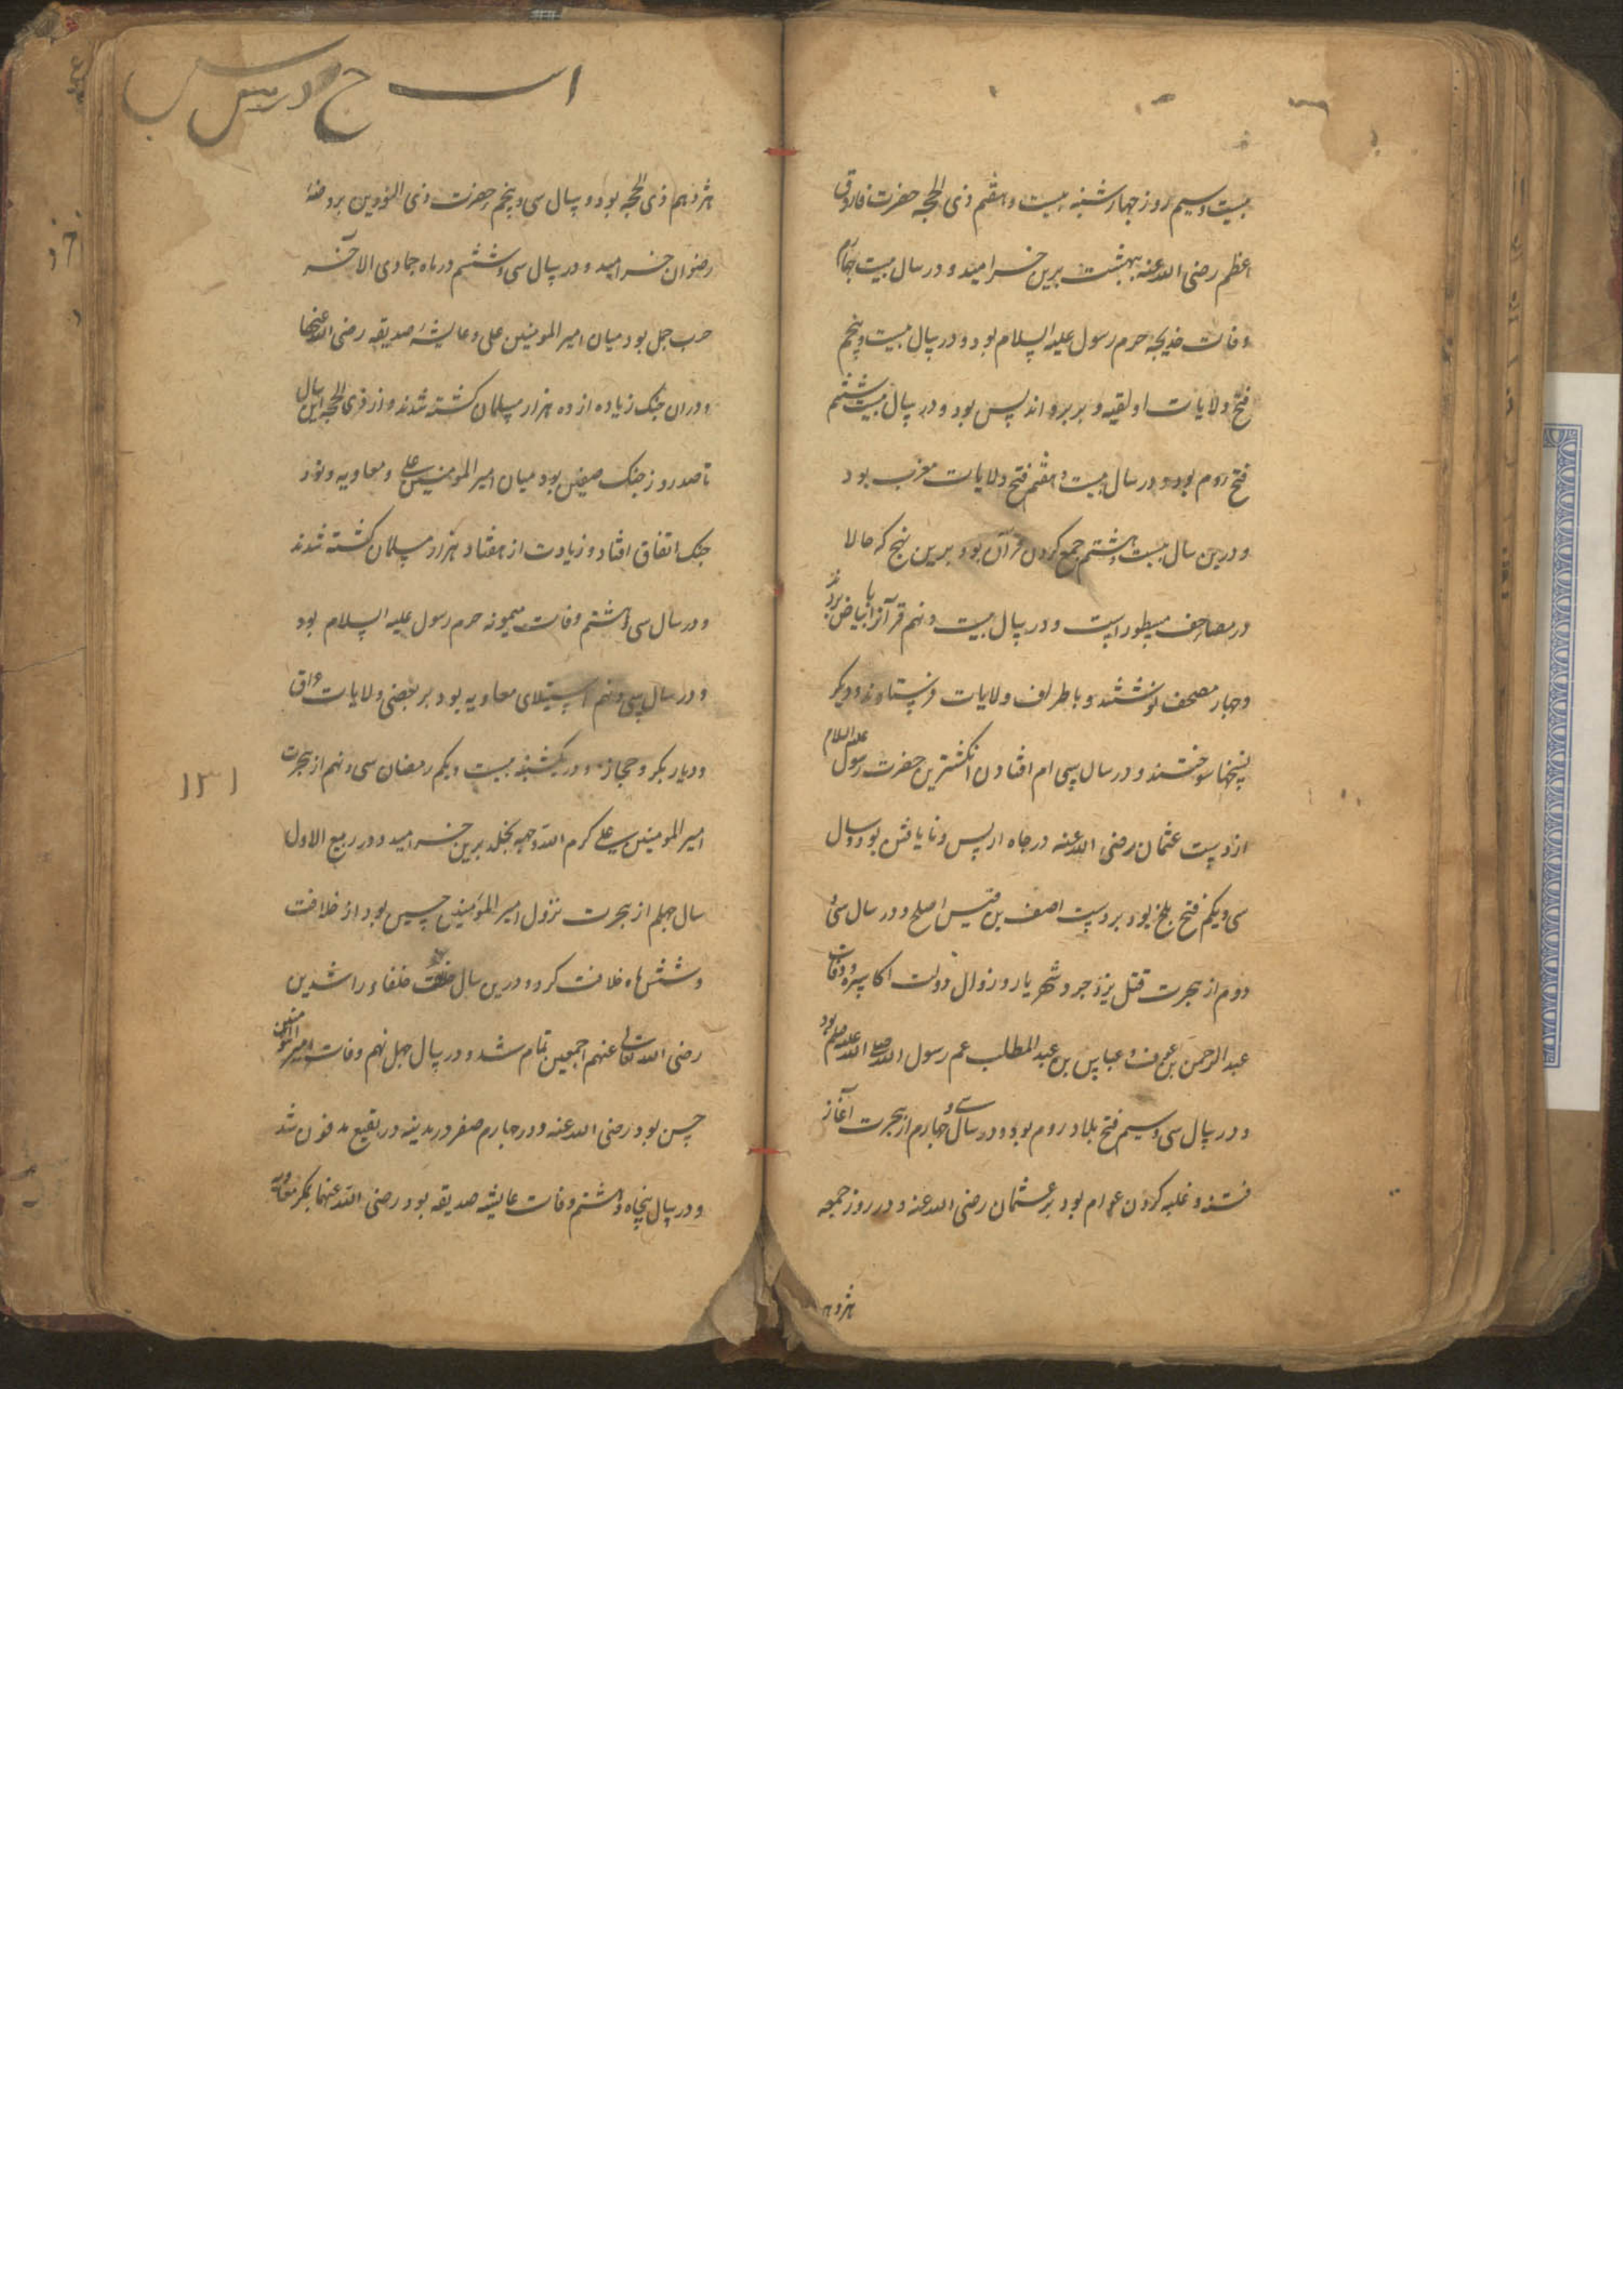 بیست و سیم روز چهارشنبه بیست و هفتم ذی الحجه حضرت فاروق
اعظم رضی الله عنه ببهشت برین خرامید و در سال بیست چهارم
وفات خدیجه حرم رسول علیه السلام بود و در سال بیست و پنجم
فتح ولایات افریقیه و بربر و اندلس بود و در سال بیست ششم
فتح روم بود و در سال بیست و هفتم فتح ولایات مغرب بود
و درین سال بیست و هشتم جمع کردن قرآن بود برین نهج که حالا
در مصاحف مسطور است و در سال بیست و نهم قرآنرا ببیاض بردند
و چهار مصحف نوشتند و باطراف ولایات فرستادند و دیگر
نسخها سوختند و در سال سی ام افتادن انگشترین حضرت رسول علیه السلام
از دست عثمان رضی الله عنه در چاه اریس و نایافتن بود و سال
سی و یکم فتح بلخ بود بر دست احنف بن قیس اصلح و در سال سی و
دوم از هجرت قتل یزدجرد شهریار و زوال دولت اکاسره و وفات
عبد الرحمن بن عوف و عباس بن عبد المطلب عم رسول الله صلی الله علیه وسلم بود
و در سال سی و سیم فتح بلاد روم بود و در سال سی و چهارم از هجرت آغاز
فتنه و غلبه کردن عوام بود بر عثمان رضی الله عنه و در روز جمعه
هژدهم
هژدهم ذی الحجه بود و سال سی و پنجم حضرت ذی النورین بروضهٔ
رضوان خرامید و در سال سی و ششم در ماه جمادی الاخر
حرب جمل بود میان امیر المومنین علی و عایشهٔ صدیقه رضی الله عنها
و دران جنک زیاده از ده هزار مسلمان کشته شدند و از ذی الحجه این سال
تا صد روز جنک صفین بود میان امیر المومنین علی و معاویه و نود
جنک اتفاق افتاد و زیادت از هفتاد هزار مسلمان کشته شدند
و در سال سی و هشتم وفات میمونه حرم رسول علیه السلام بود
و در سال سی و نهم استیلای معاویه بود بر بعضی ولایات عراق
و دیار بکر و حجاز و در یکشنبه بیست و یکم رمضان سی و نهم از هجرت
امیر المومنین علی کرم الله وجهه بخلد برین خرامید و در ربیع الاول
سال چهلم از هجرت نزول امیر المومنین حسن بود از خلافت
و شش ماه خلافت کرد و درین سال خلافت خلفاء راشدین
رضی الله تعالی عنهم اجمعین تمام شد و در سال چهل نهم وفات امیر المومنین
حسن بود رضی الله عنه و در چهارم صفر در مدینه در بقیع مدفون شد
و در سال پنجاه و هشتم وفات عایشه صدیقه بود رضی الله عنها بمکر معاویه
۱۳۱